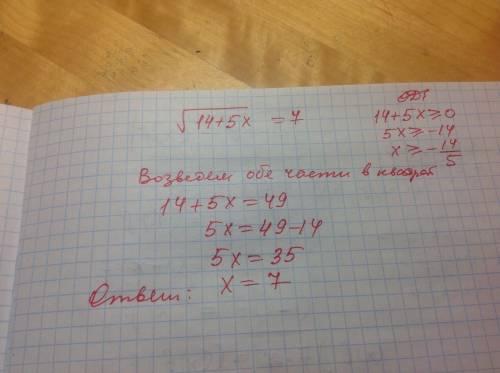 √14+5x = 7
ОДЗ
14+5x ≥ 0
5x ≥ -14
x ≥ -14/5
Возведем обе части в квадрат
14+5x = 49
5x = 49-14
5x = 35
Ответ: x = 7